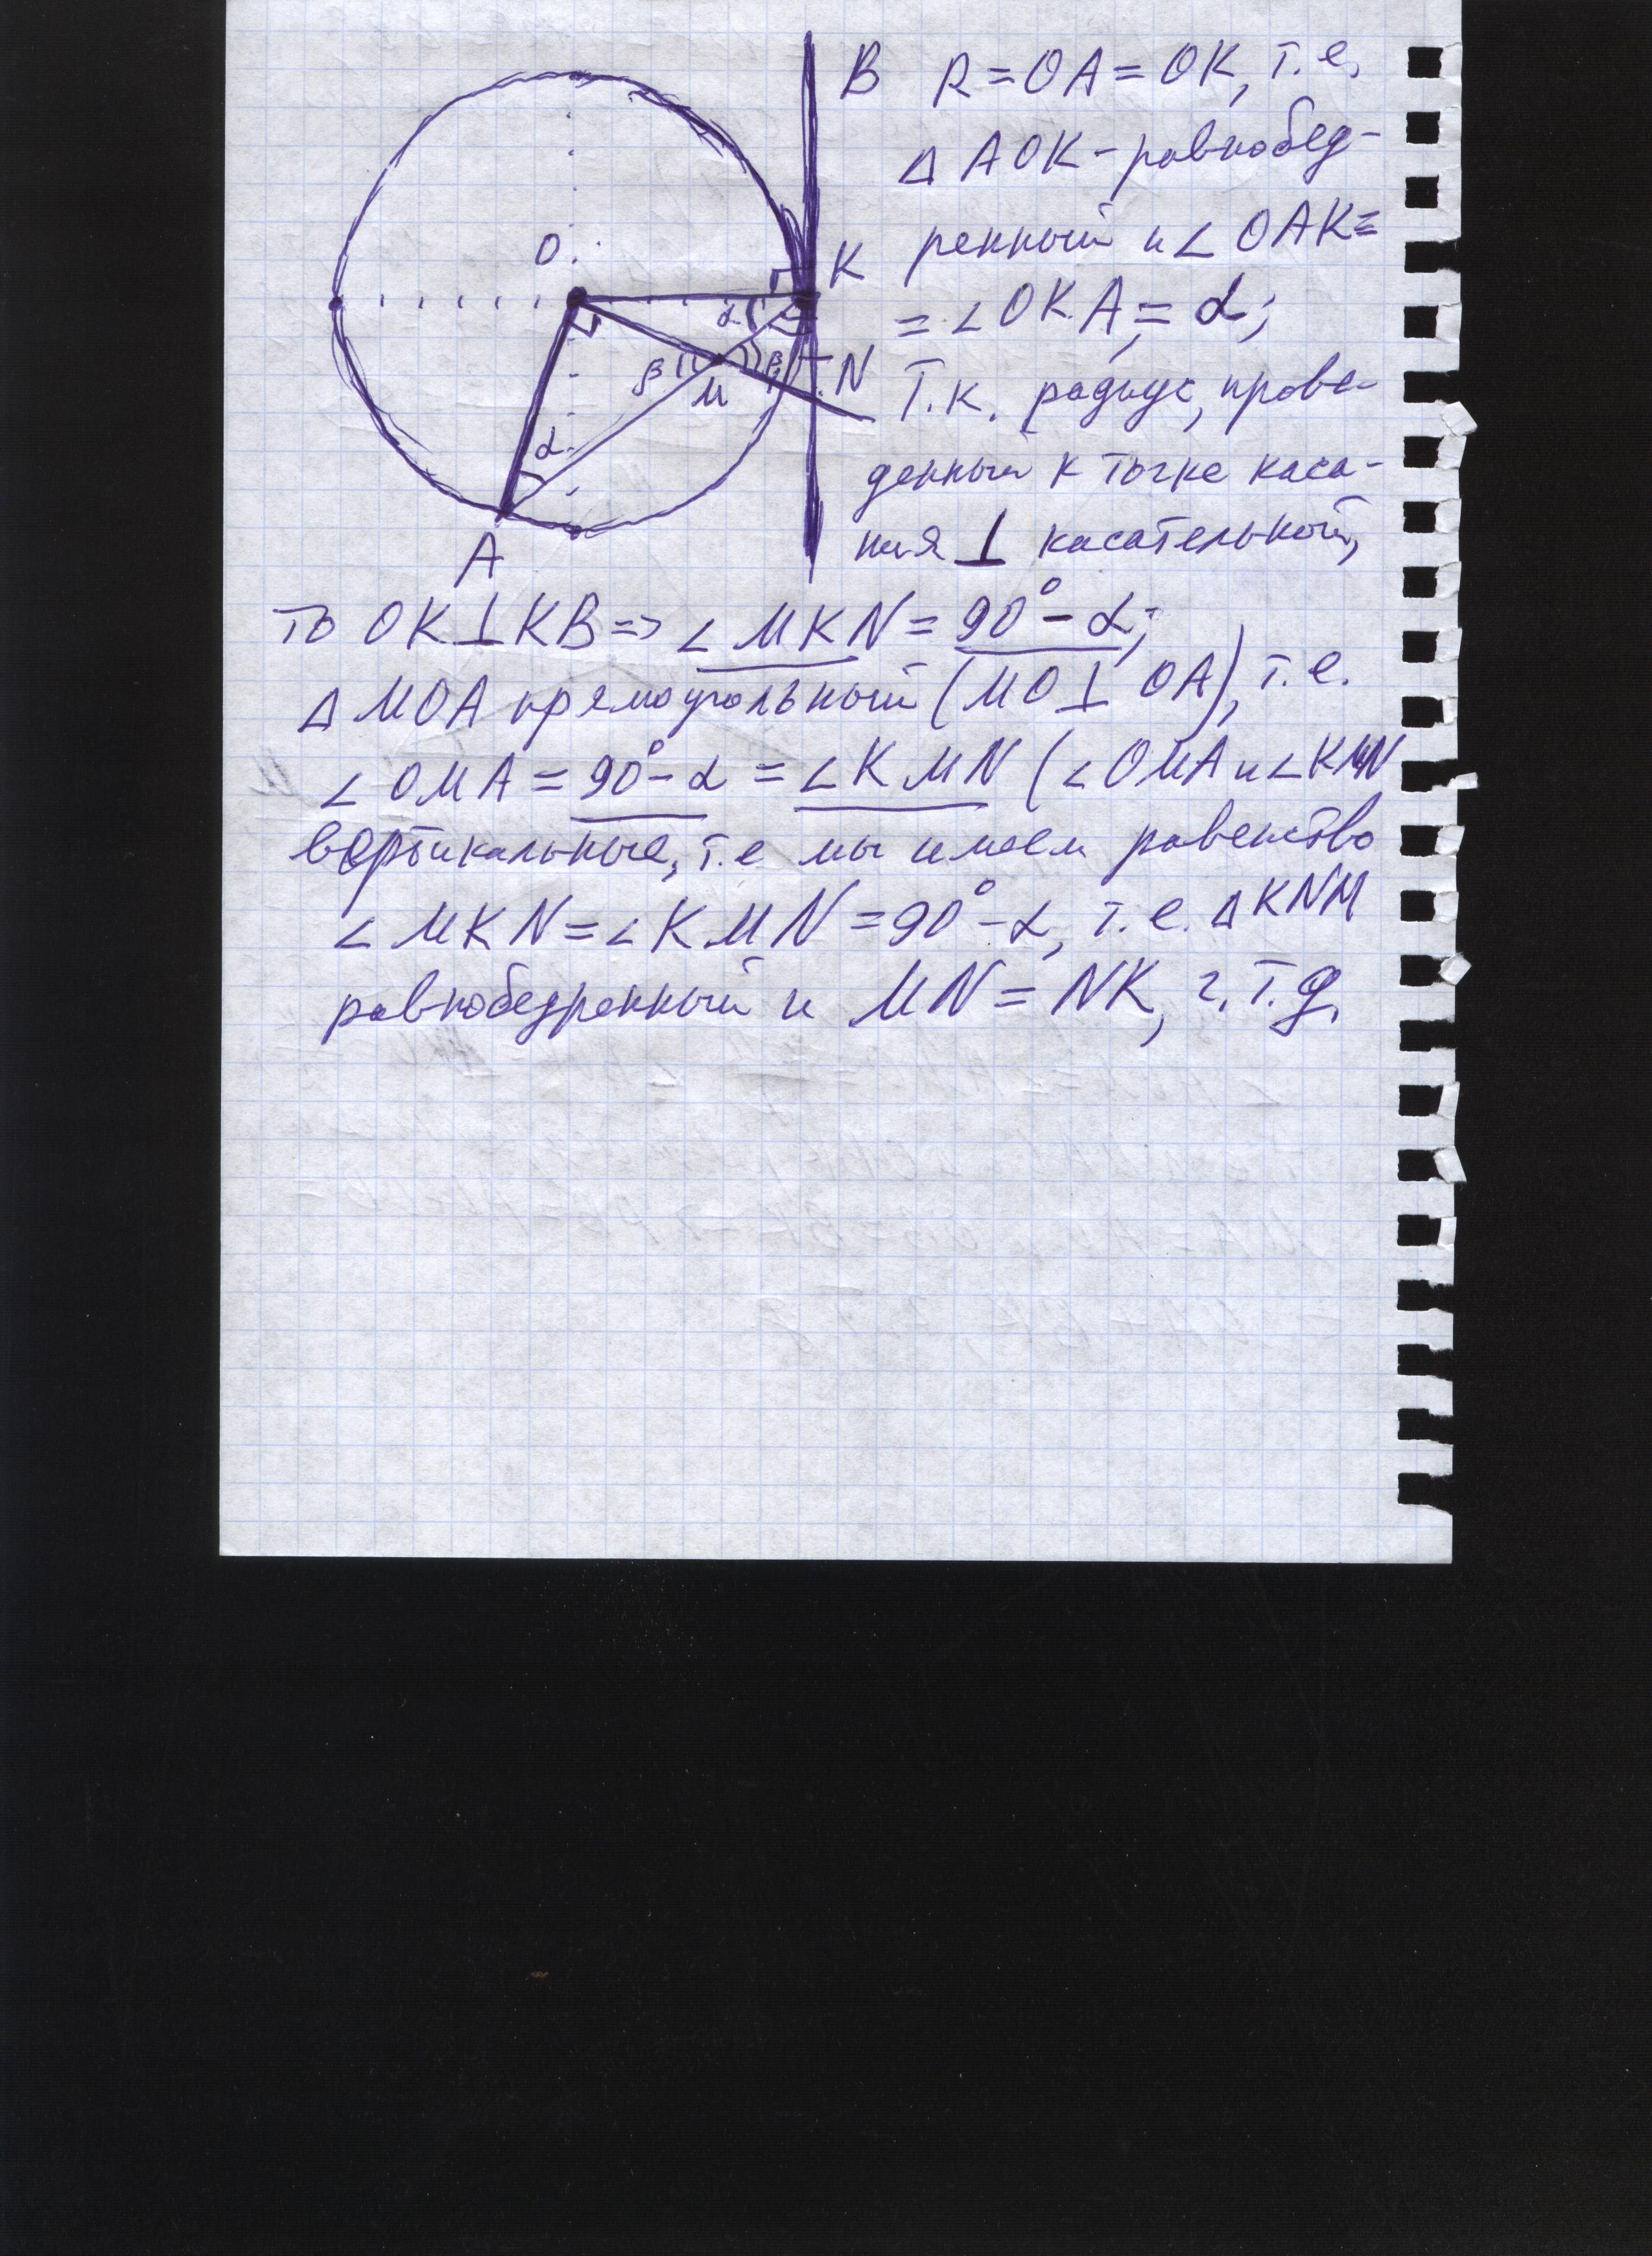 B R = OA = OK, т.е.
Δ AOK - равнобед-
ренный и ∠ OAK =
= ∠ OKA = α;
Т.к. радиус, прове-
денный к точке каса-
ния ⊥ касательной,
O
K
α
β
β
N
M
α
A
то OK ⊥ KB => ∠ MKN = 90° - α;
Δ MOA прямоугольный (MO ⊥ OA), т.е.
∠ OMA = 90° - α = ∠ KMN (∠ OMA и ∠ KMN
вертикальные, т.е мы имеем равенство
∠ MKN = ∠ KMN = 90° - α, т.е. Δ KNM
равнобедренный и MN = NK, ч.т.д.